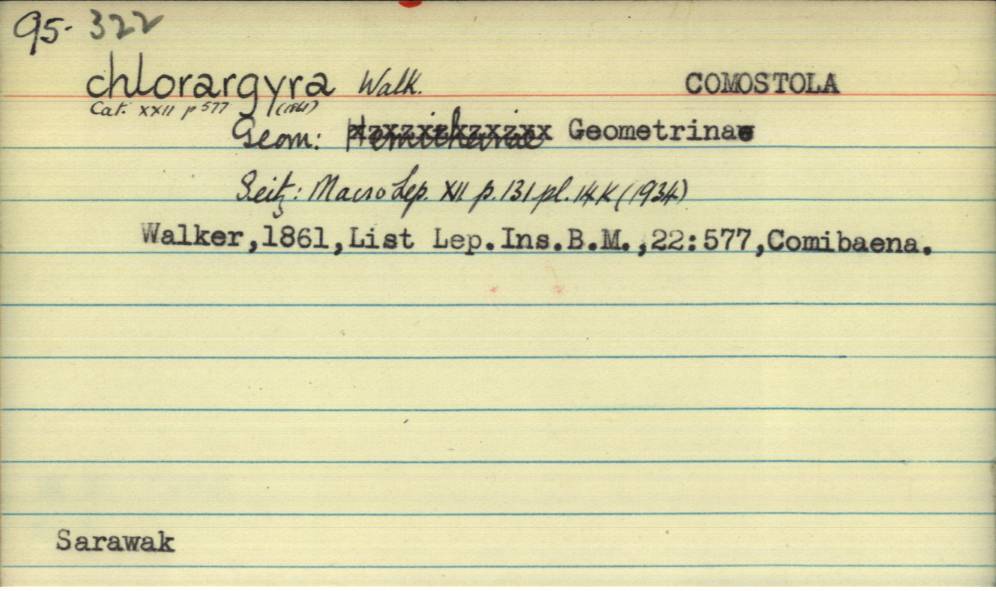 95- 322
chlorargyra Walk. COMOSTOLA
Cat. XXII p 577 (1861)
Geom: Hemitheinae Geometrinae
Seitz: Macro Lep. XII p. 131 pl. 14k (1934)
Walker,1861,List Lep.Ins.B.M.,22:577,Comibaena.
Sarawak